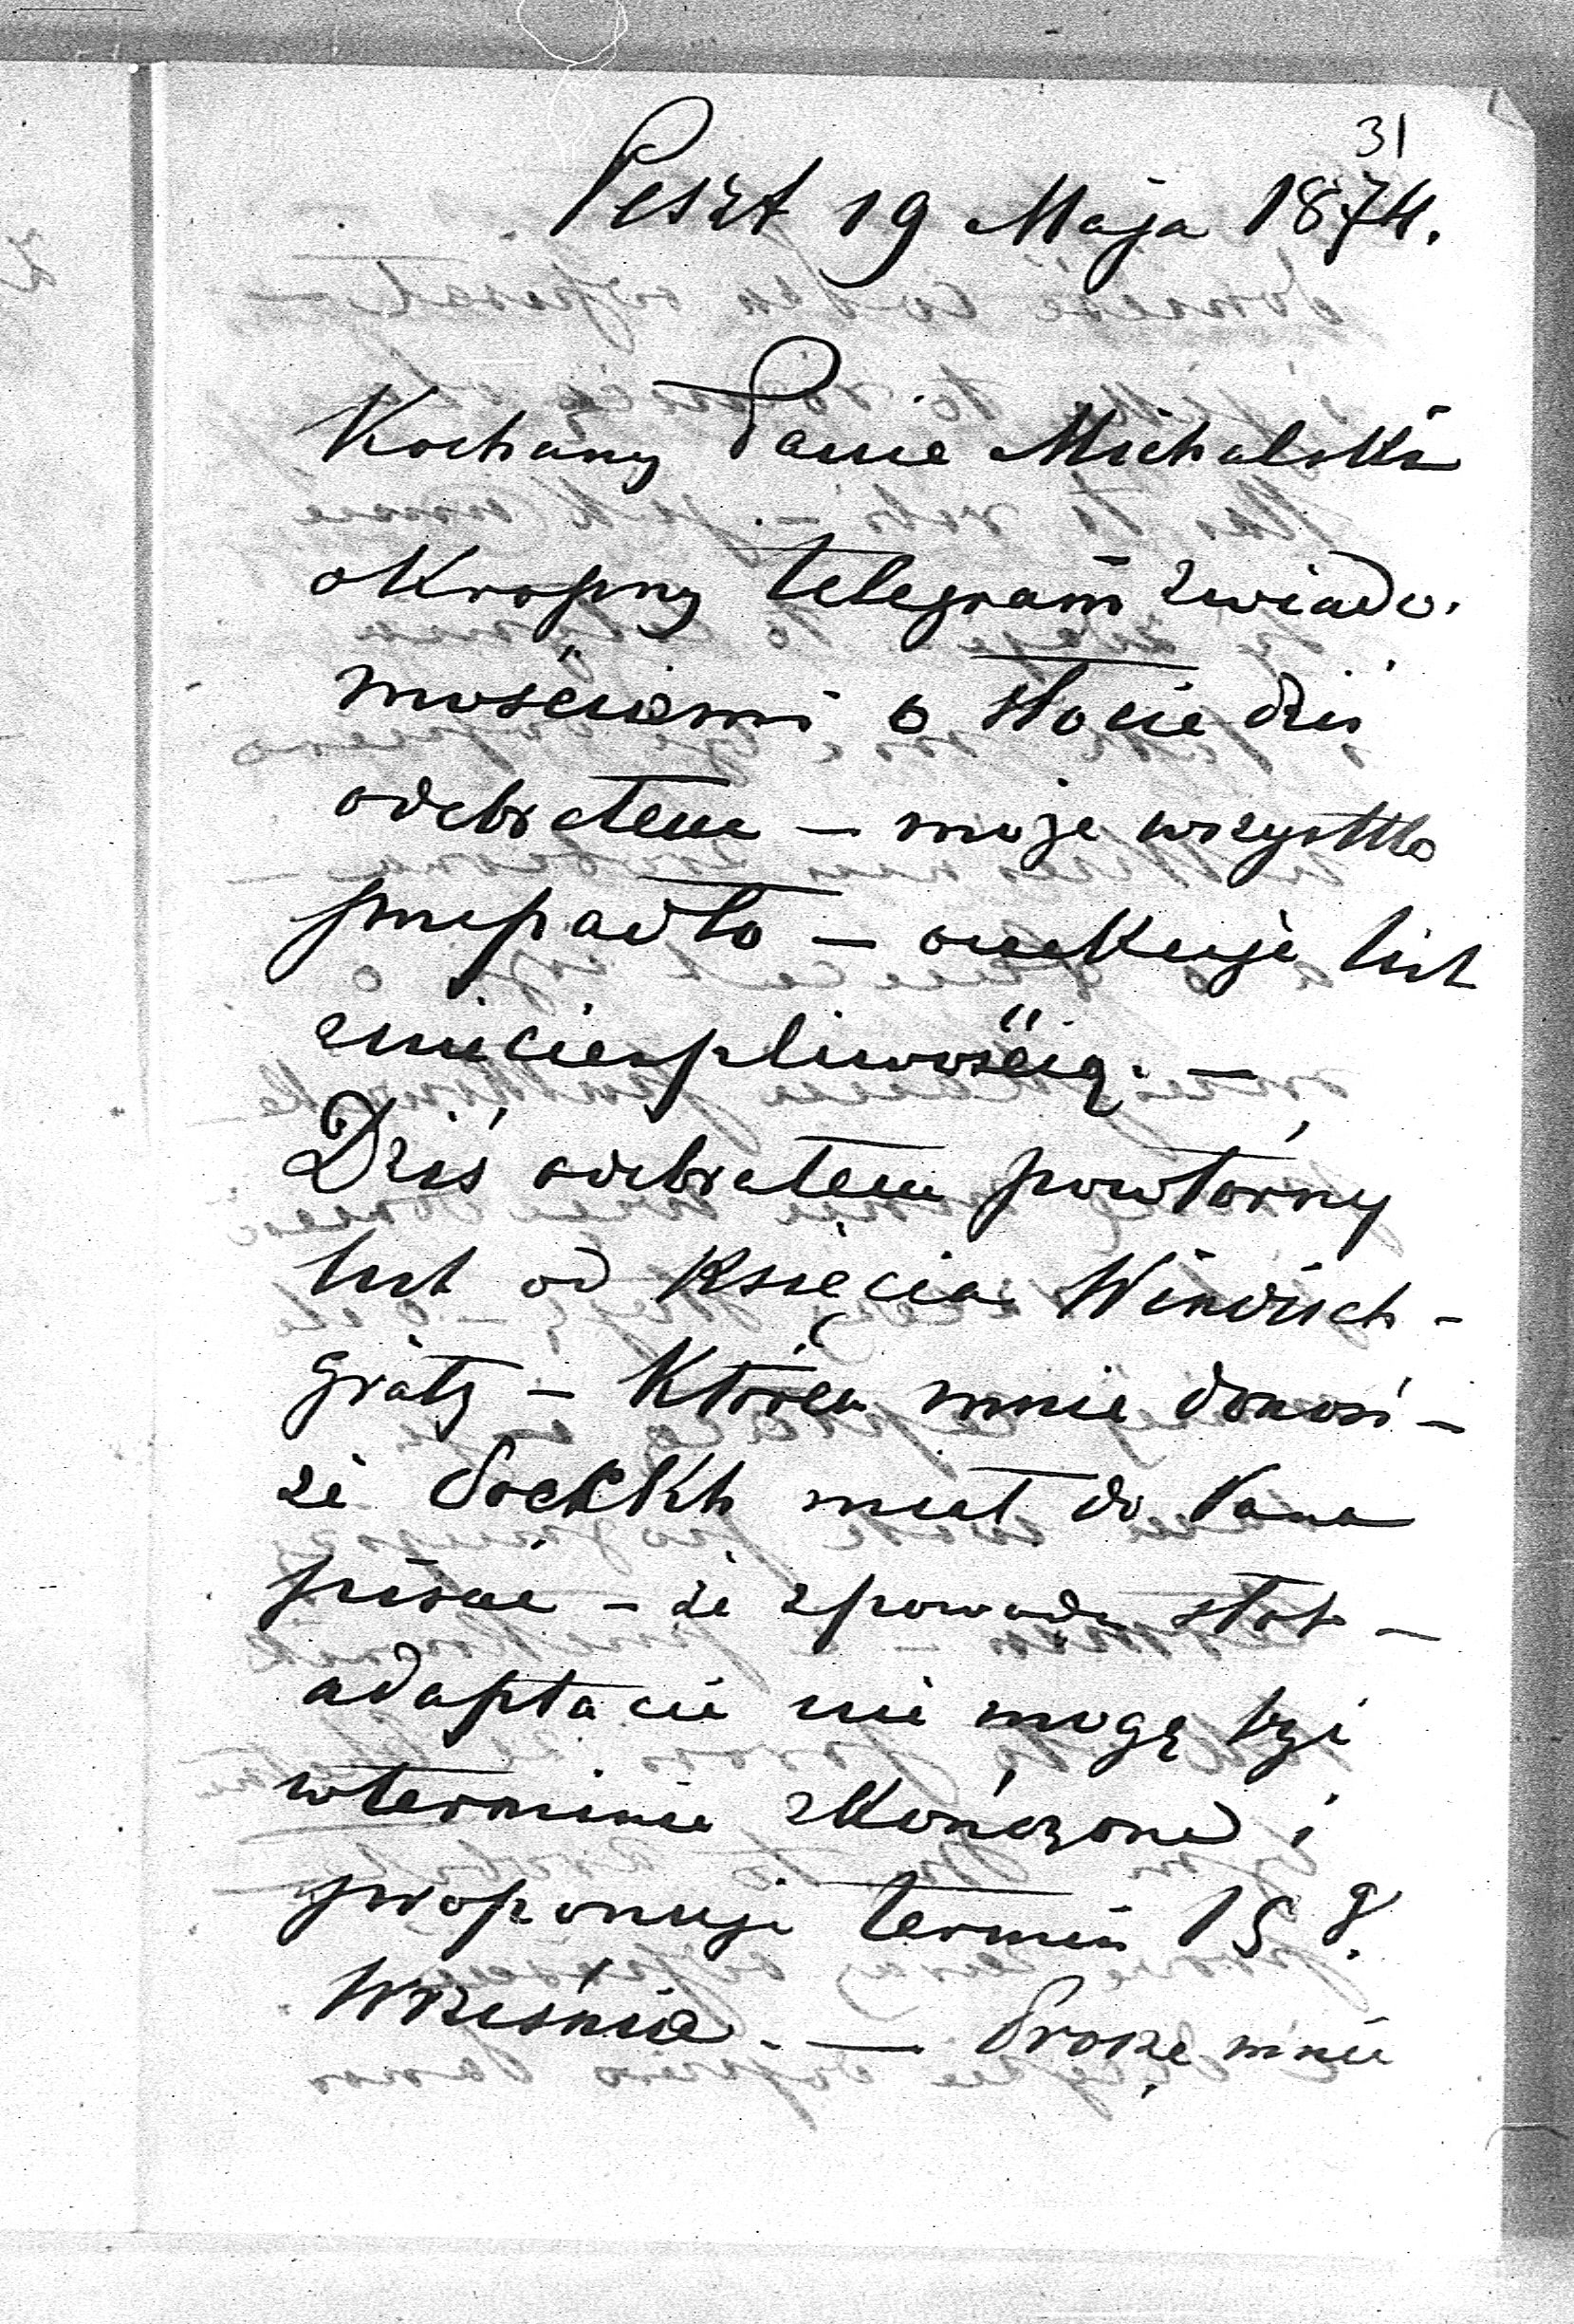 31
Peszt 19 Maja 1874.
Kochany Panie Michalski
okropny telegram zwiado-
mościami o słocie dziś
odebrałem — moje wszystko
przepadło — oczekuję list
zniecierpliwością. —
Dziś odebrałem powtórny
list od Księcia Windisch-
grätz — który mnie donosi —
że miał do Pana
pisać — że zpowodu słot —
adaptacie nie mogą być
wterminie zkończone i
proponuje termin 15 g.
Wrześnie. — Proszę mnie